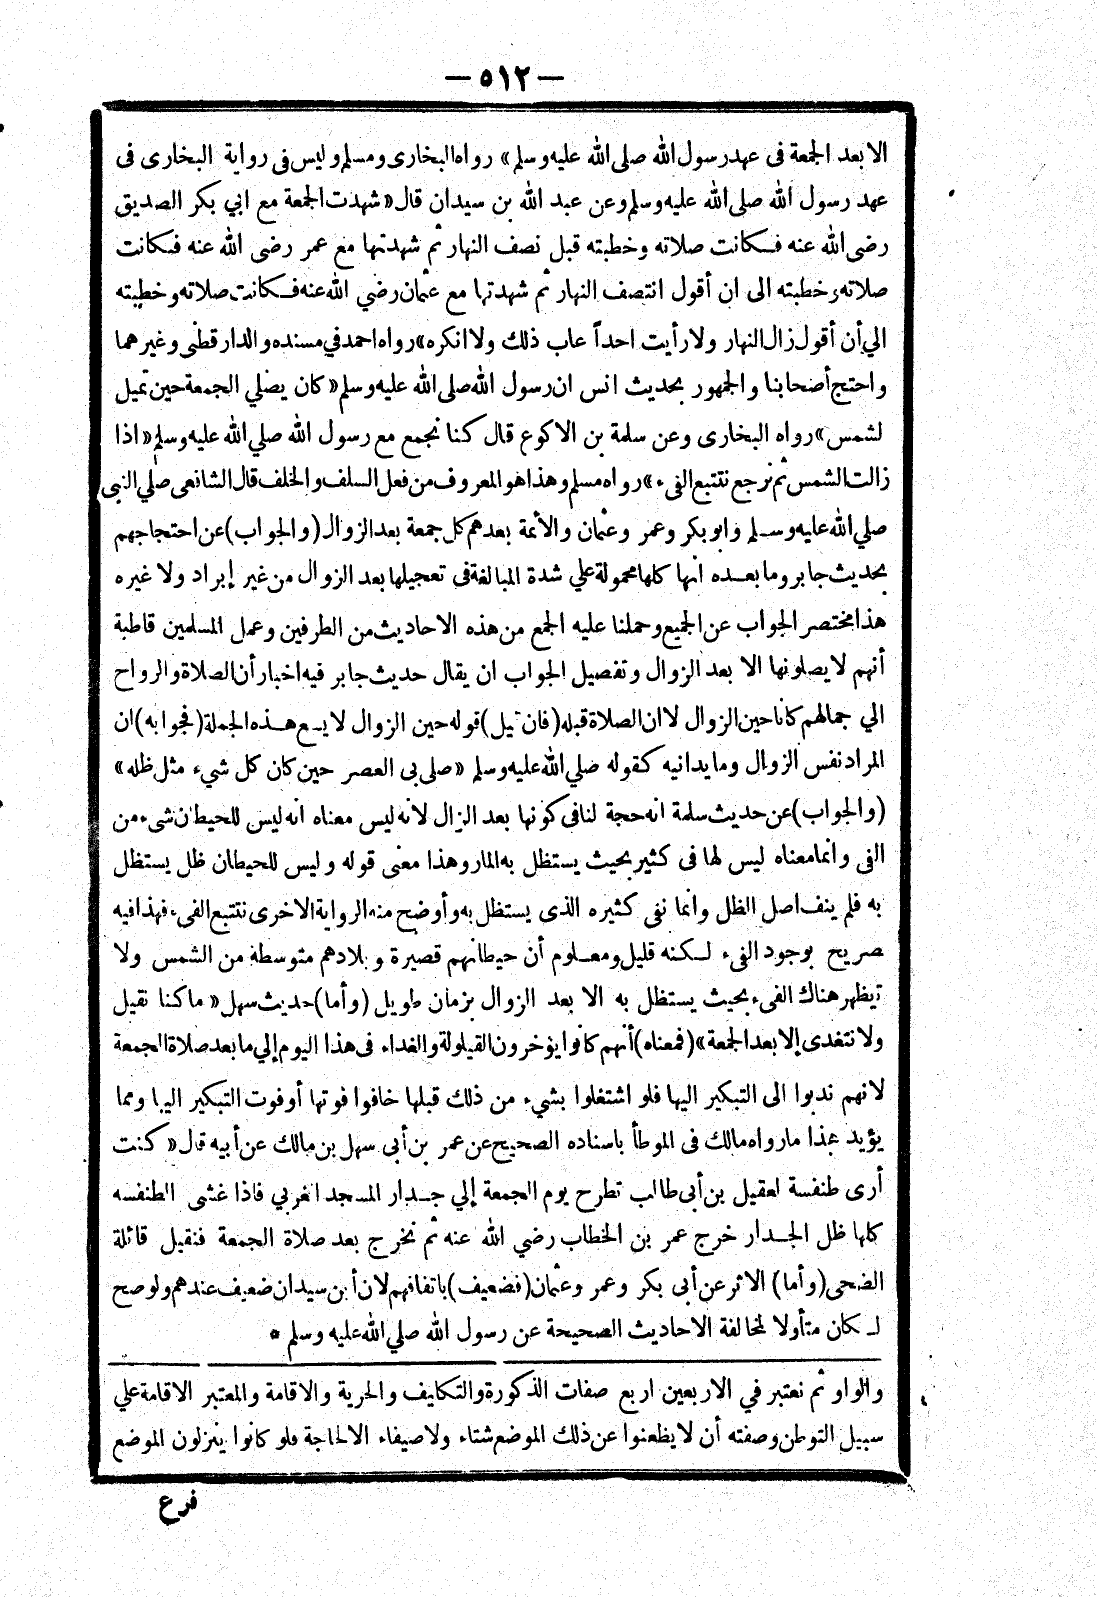 — ٥١٢ —
الا بعد الجمعة فى عهد رسول الله صلى الله عليه وسلم» رواه البخارى ومسلم وليس فى رواية البخارى فى
عهد رسول الله صلى الله عليه وسلم وعن عبد الله بن سيدان قال «شهدت الجمعة مع ابي بكر الصديق
رضى الله عنه فكانت صلاته وخطبته قبل نصف النهار ثم شهدتها مع عمر رضى الله عنه فكانت
صلاته وخطبته الى ان أقول انتصف النهار ثم شهدتها مع عثمان رضي الله عنه فكانت صلاته وخطبته
الي أن أقول زال النهار ولا رأيت احداً عاب ذلك ولا انكره» رواه احمد في مسنده والدارقطنى وغيرهما
واحتج أصحابنا والجمهور بحديث انس ان رسول الله صلى الله عليه وسلم «كان يصلي الجمعة حين تميل
لشمس» رواه البخارى وعن سلمة بن الاكوع قال كنا نجمع مع رسول الله صلي الله عليه وسلم «اذا
زالت الشمس ثم نرجع نتتبع الفىء» رواه مسلم وهذا هو المعروف من فعل السلف والخلف قال الشافعى صلي النبى
صلي الله عليه وسلم وابو بكر وعمر وعثمان والأئمة بعدهم كل جمعة بعد الزوال (والجواب) عن احتجاجهم
بحديث جابر وما بعده انها كلها محمولة علي شدة المبالغة فى تعجيلها بعد الزوال من غير إبراد ولا غيره
هذا مختصر الجواب عن الجميع وحملنا عليه الجمع من هذه الاحاديث من الطرفين وعمل المسلمين قاطبة
أنهم لا يصلونها الا بعد الزوال وتفصيل الجواب ان يقال حديث جابر فيه اخبار أن الصلاة والرواح
الي جمالهم كانا حين الزوال لا ان الصلاة قبله (فان قيل) قوله حين الزوال لا يسع هذه الجملة (فجوابه) ان
المراد نفس الزوال وما يدانيه كقوله صلي الله عليه وسلم «صلى بى العصر حين كان كل شيء مثل ظله»
(والجواب) عن حديث سلمة انه حجة لنا فى كونها بعد الزال لانه ليس معناه انه ليس للحيطان شىء من
الفى وانما معناه ليس لها فى كثير بحيث يستظل به المار وهذا معنى قوله وليس للحيطان ظل يستظل
به فلم ينف اصل الظل وانما نفى كثيره الذى يستظل به وأوضح منه الرواية الاخرى نتتبع الفىء فهذا فيه
صريح بوجود الفىء لكنه قليل ومعلوم أن حيطانهم قصيرة وبلادهم متوسطة من الشمس ولا
يظهر هناك الفىء بحيث يستظل به الا بعد الزوال بزمان طويل (وأما) حديث سهل «ما كنا نقيل
ولا نتغدى إلا بعد الجمعة» (فمعناه) أنهم كانوا يؤخرون القيلولة والغداء فى هذا اليوم إلي ما بعد صلاة الجمعة
لانهم ندبوا الى التبكير اليها فلو اشتغلوا بشيء من ذلك قبلها خافوا فوتها أو فوت التبكير اليها ومما
يؤيد هذا ما رواه مالك فى الموطأ باسناده الصحيح عن عمر بن أبى سهل بن مالك عن أبيه قال «كنت
أرى طنفسة لعقيل بن أبى طالب تطرح يوم الجمعة إلي جدار المسجد الغربي فاذا غشى الطنفسه
كلها ظل الجدار خرج عمر بن الخطاب رضي الله عنه ثم نخرج بعد صلاة الجمعة فنقيل قائلة
الضحى (وأما) الاثر عن أبى بكر وعمر وعثمان (فضعيف) باتفاقهم لان أبن سيدان ضعيف عندهم ولو صح
لكان متأولا لمخالفة الاحاديث الصحيحة عن رسول الله صلي الله عليه وسلم *
والواو ثم نعتبر في الاربعين اربع صفات الذكورة والتكليف والحرية والاقامة والمعتبر الاقامة علي
سبيل التوطن وصفته أن لا يظعنوا عن ذلك الموضع شتاء ولا صيفاء الا لحاجة فلو كانوا ينزلون الموضع
فرع